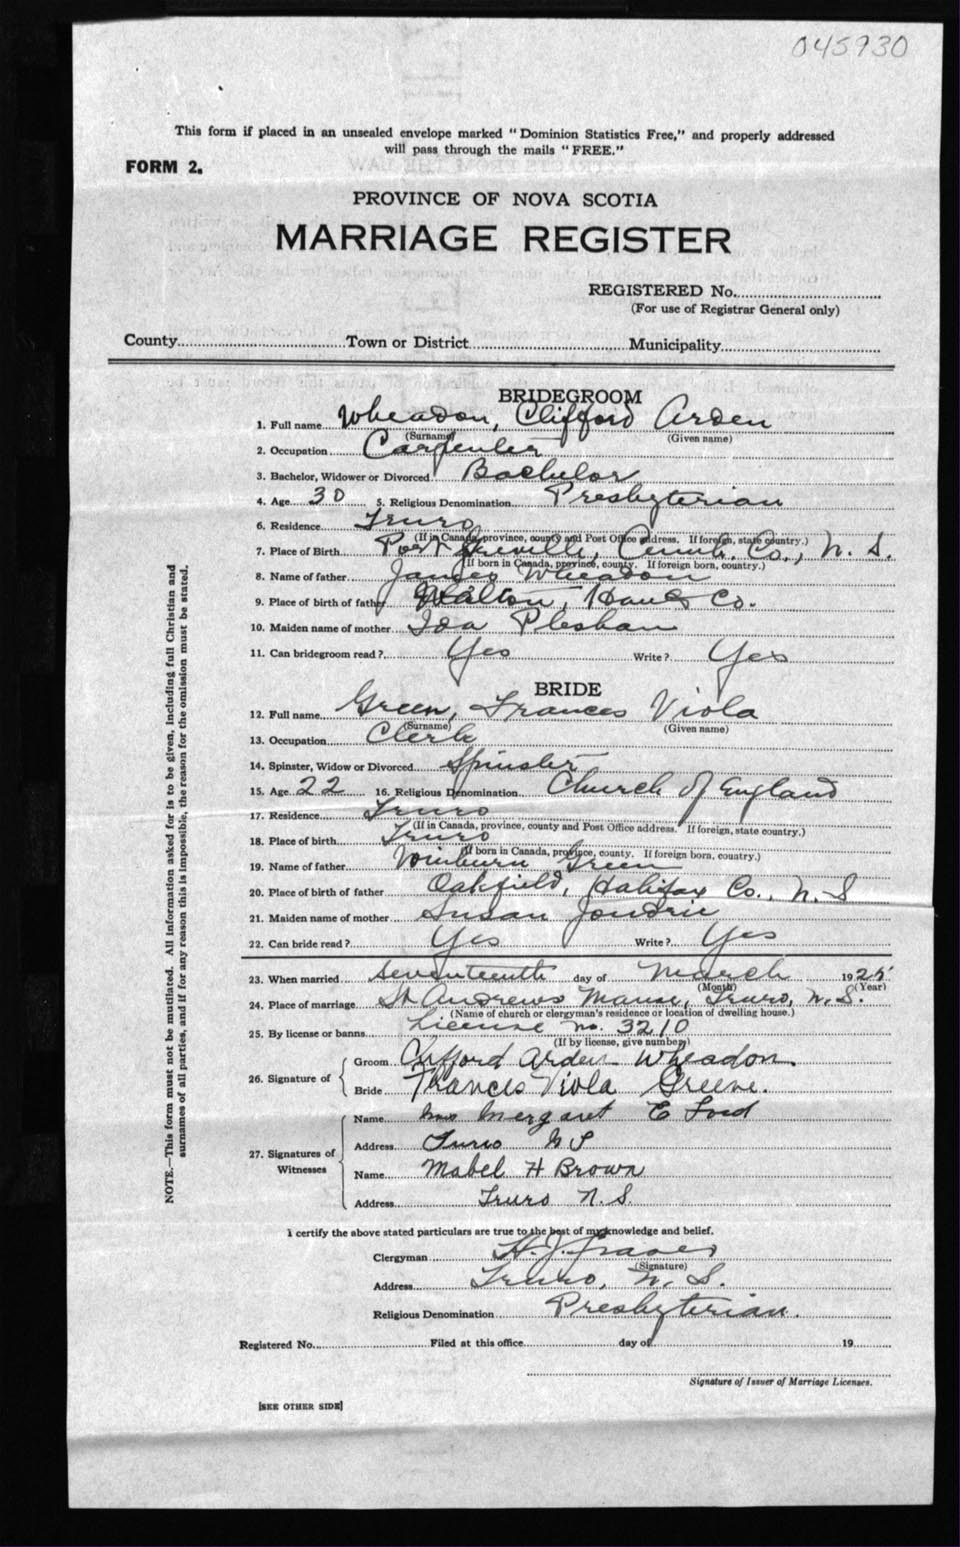 045930
This form if placed in an unsealed envelope marked "Dominion Statistics Free," and properly addressed
will pass through the mails "FREE."
FORM 2.
PROVINCE OF NOVA SCOTIA
MARRIAGE REGISTER
REGISTERED No.
(For use of Registrar General only)
County Town or District Municipality
BRIDEGROOM
1. Full name Wheadon, Clifford Arden
(Surname) (Given name)
2. Occupation Carpenter
3. Bachelor, Widower or Divorced Bachelor
4. Age 30 5. Religious Denomination Presbyterian
6. Residence Truro
(If in Canada, province, county and Post Office address. If foreign, state country.)
7. Place of Birth Port Greville, Cumb. Co., N. S.
(If born in Canada, province, county. If foreign born, country.)
8. Name of father James Wheadon
9. Place of birth of father Walton, Hants Co.
10. Maiden name of mother Ida
11. Can bridegroom read? Yes Write? Yes
BRIDE
12. Full name Green, Frances Viola
(Surname) (Given name)
13. Occupation Clerk
14. Spinster, Widow or Divorced Spinster
15. Age 22 16. Religious Denomination Church of England
17. Residence Truro
(If in Canada, province, county and Post Office address. If foreign, state country.)
18. Place of birth Truro
(If born in Canada, province, county. If foreign born, country.)
19. Name of father Winburn Green
20. Place of birth of father Oakfield, Halifax Co., N. S
21. Maiden name of mother Susan Joudrie
22. Can bride read? Yes Write? Yes
23. When married seventeenth day of March 1925
(Month) (Year)
24. Place of marriage St Andrews Manse, Truro, N. S.
(Name of church or clergyman's residence or location of dwelling house.)
25. By license or banns License no. 3210
(If by license, give number)
26. Signature of
Groom Clifford Arden Wheadon
Bride Frances Viola Greene.
27. Signatures of Witnesses
Name Mrs Margaret E Ford
Address Truro N S
Name Mabel H Brown
Address Truro N. S.
I certify the above stated particulars are true to the best of my knowledge and belief.
Clergyman H. J. Fraser
(Signature)
Address Truro, N. S.
Religious Denomination Presbyterian.
Registered No. Filed at this office day of 19
Signature of Issuer of Marriage Licenses.
[SEE OTHER SIDE]
NOTE.—This form must not be mutilated. All information asked for is to be given, including full Christian and
surnames of all parties, and if for any reason this is impossible, the reason for the omission must be stated.